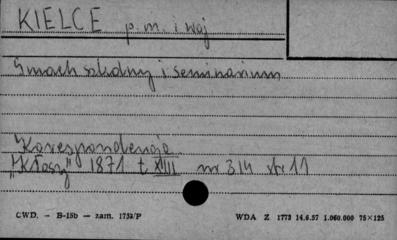 KIELCE p. m. i woj
Gmach szkolny i seminarium
Korespondencja
"Kłosy" 1871 t XIII nr 314 str 11
CWD. — B-15b — zam. 1753/P WDA Z 1773 14.6.57 1.060.000 75×125